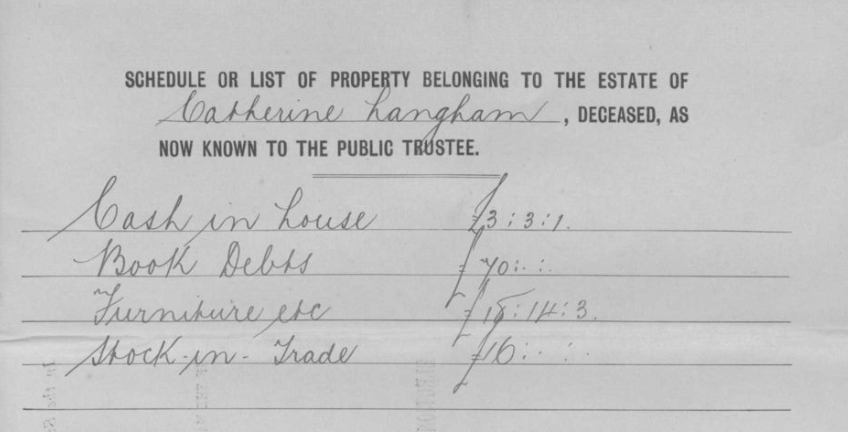 SCHEDULE OR LIST OF PROPERTY BELONGING TO THE ESTATE OF
Catherine Langham, DECEASED, AS
NOW KNOWN TO THE PUBLIC TRUSTEE.
Cash in house £3:3:1.
Book Debts £70:-:-
Furniture etc £15:14:3.
Stock-in-Trade £16:-:-